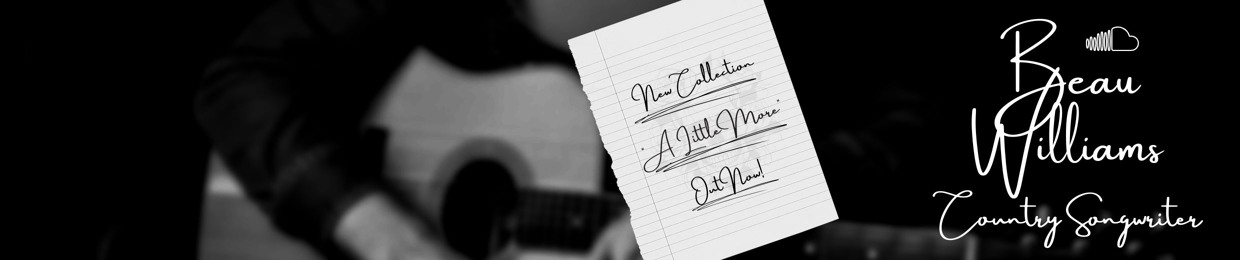 New Collection
"A Little More"
Out Now!
Beau
Williams
Country Songwriter